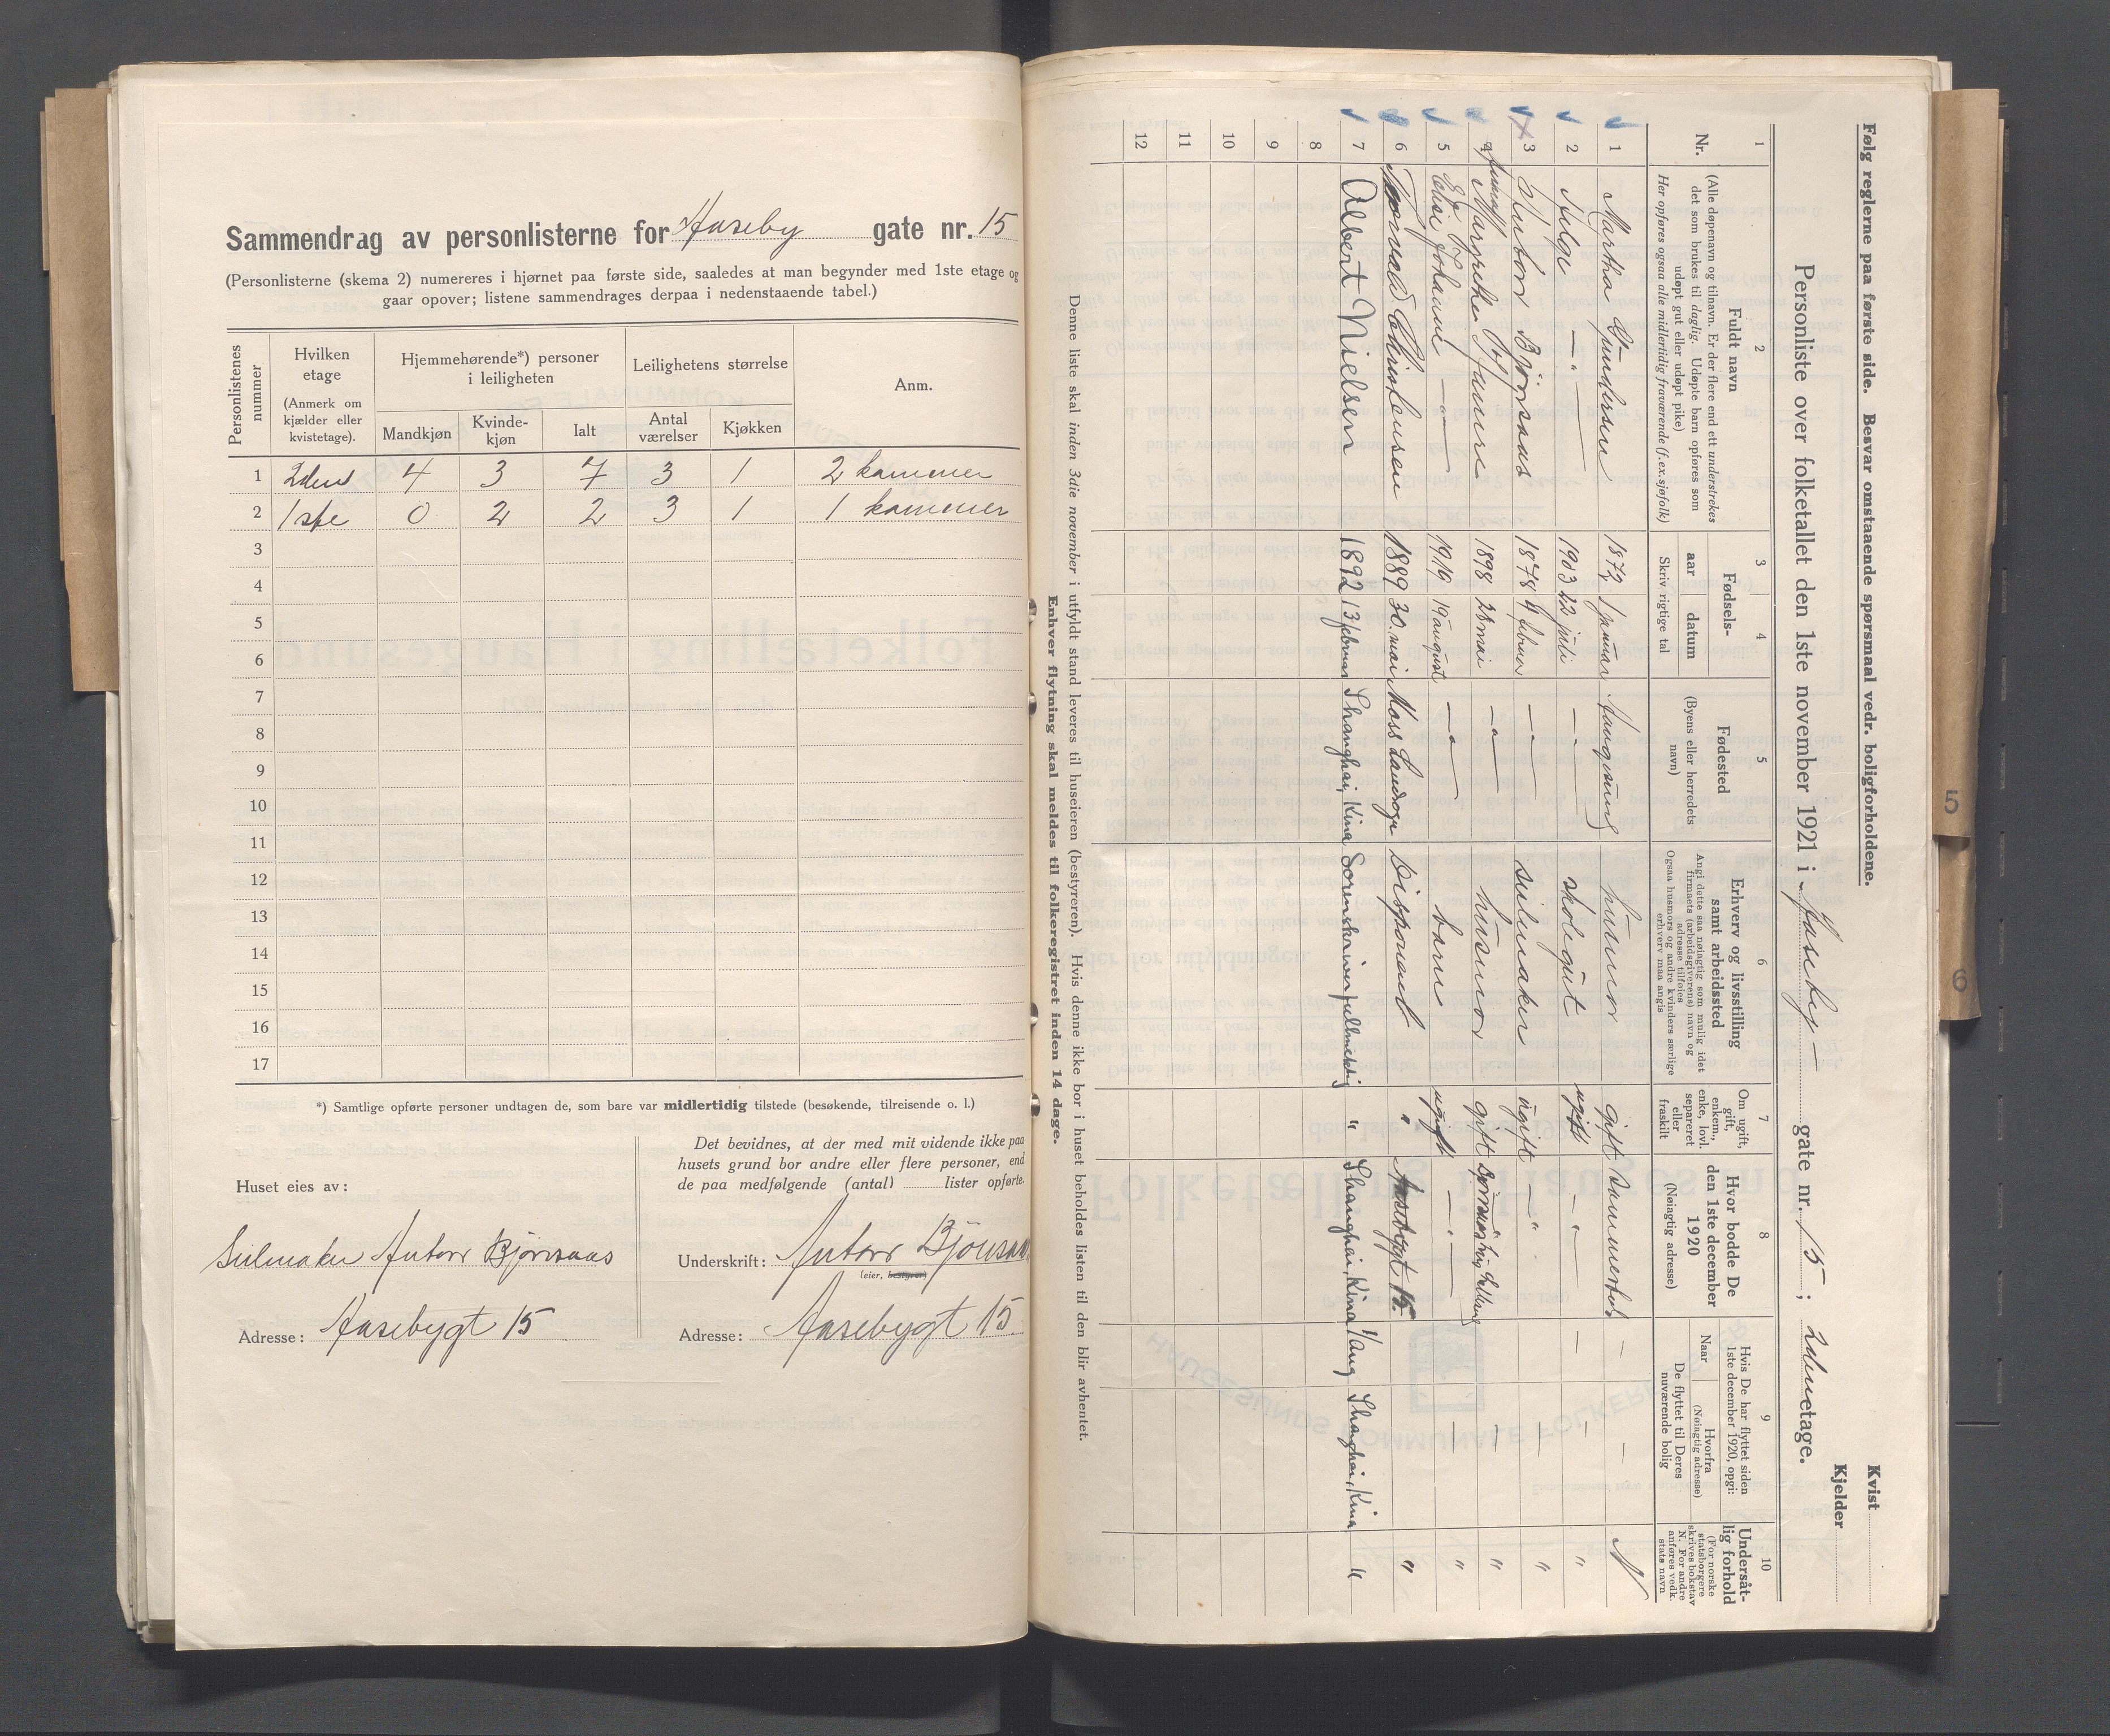 Sammendrag av personlisterne for Aaseby gate nr. 15
(Personlisterne (skema 2) numereres i hjørnet paa første side, saaledes at man begynder med 1ste etage og
gaar opover; listene sammendrages derpaa i nedenstaaende tabel.)
Personlistenes nummer
Hvilken etage
(Anmerk om kjælder eller kvistetage).
Hjemmehørende*) personer i leiligheten
Mandkjøn Kvinde-kjøn Ialt
Leilighetens størrelse
Antal værelser Kjøkken
Anm.
1 2den 4 3 7 3 1 2 kammer
2 1ste 0 2 2 3 1 1 kammer
3
4
5
6
7
8
9
10
11
12
13
14
15
16
17
*) Samtlige opførte personer undtagen de, som bare var midlertidig tilstede (besøkende, tilreisende o. l.)
Huset eies av:
Seilmaker Antorr Bjørnsaas
Adresse: Aasebygt 15
Det bevidnes, at der med mit vidende ikke paa
husets grund bor andre eller flere personer, end
de paa medfølgende (antal) lister opførte.
Underskrift: Antorr Bjönsaas
(eier, bestyrer)
Adresse: Aasebygt 15
Følg reglerne paa første side. Besvar omstaaende spørsmaal vedr. boligforholdene.
Kvist
Kjelder
Personliste over folketallet den 1ste november 1921 i Aaseby — gate nr. 15; 2den etage.
1 2 3 4 5 6 7 8 9 10
Nr.
Fuldt navn
(Alle døpenavn og tilnavn. Er der flere end ett understrekes
det som brukes til daglig. Udøpte barn opføres som
udøpt gut eller udøpt pike)
Her opføres ogsaa alle midlertidig fraværende (f.ex.sjøfolk)
Fødsels-
aar datum
Skriv rigtige tal
Fødested
(Byens eller herredets navn)
Erhverv og livsstilling
samt arbeidssted
Angi dette saa nøiagtig som mulig idet
firmaets (arbeidsgiverens) navn og
adresse tilføies
Ogsaa husmors og andre kvinders særlige
erhverv maa angis
Om ugift, gift, enkem., enke, lovl. separeret eller fraskilt
Hvor bodde De
den 1ste december
1920
(Nøiagtig adresse)
Hvis De har flyttet siden
1ste december 1920, opgi:
Naar
Hvorfra
(Nøiagtig adresse)
De flyttet til Deres
nuværende bolig
Undersåt-
lig forhold
(For norske
statsborgere
skrives bokstav
N. For andre
anføres vedk.
stats navn
1 Martha Gundersen 187 1 januar Haugesund husmor gift Sammested — — N
2 Helge — " — 1903 22 juli — " — skolegut ugift — " — — — "
3 Antorr Björnsaas 1878 4 februar — " — seilmaker ugift — " — "
4 Margrethe 1898 28 mai — " — husmor gift — "
5 Else Johanne — " — 1919 19 august — " — barn ugift — " — — "
6 Thorvald Christensen 1889 30. mai Moss Landsogn Disponent " Aasebygt 15. "
7 Albert Nielsen 1892 13 februar Shanghai, Kina Sorenskriverfuldmektig " Shanghai, Kina 1/Aug Shanghai, Kina "
8
9
10
11
12
Denne liste skal inden 3die november i utfyldt stand leveres til huseieren (bestyreren). Hvis denne ikke bor i huset beholdes listen til den blir avhentet.
Enhver flytning skal meldes til folkeregistret inden 14 dage.
5
6